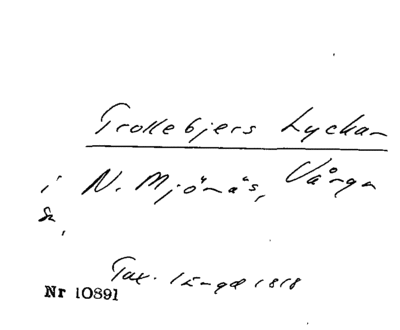 Trollebjers Lyckan
i N. Mjönäs, Vånga
sn,
Tax. längd 1818
Nr 10891